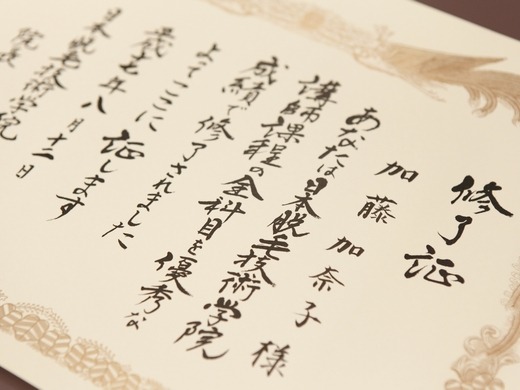 修了証
加藤加奈子様
あなたは日本脱毛技術学院
講師課程の全科目を優秀な
成績で修了されました
よってここに証します
八月十二日
日本脱毛技術学院
院長